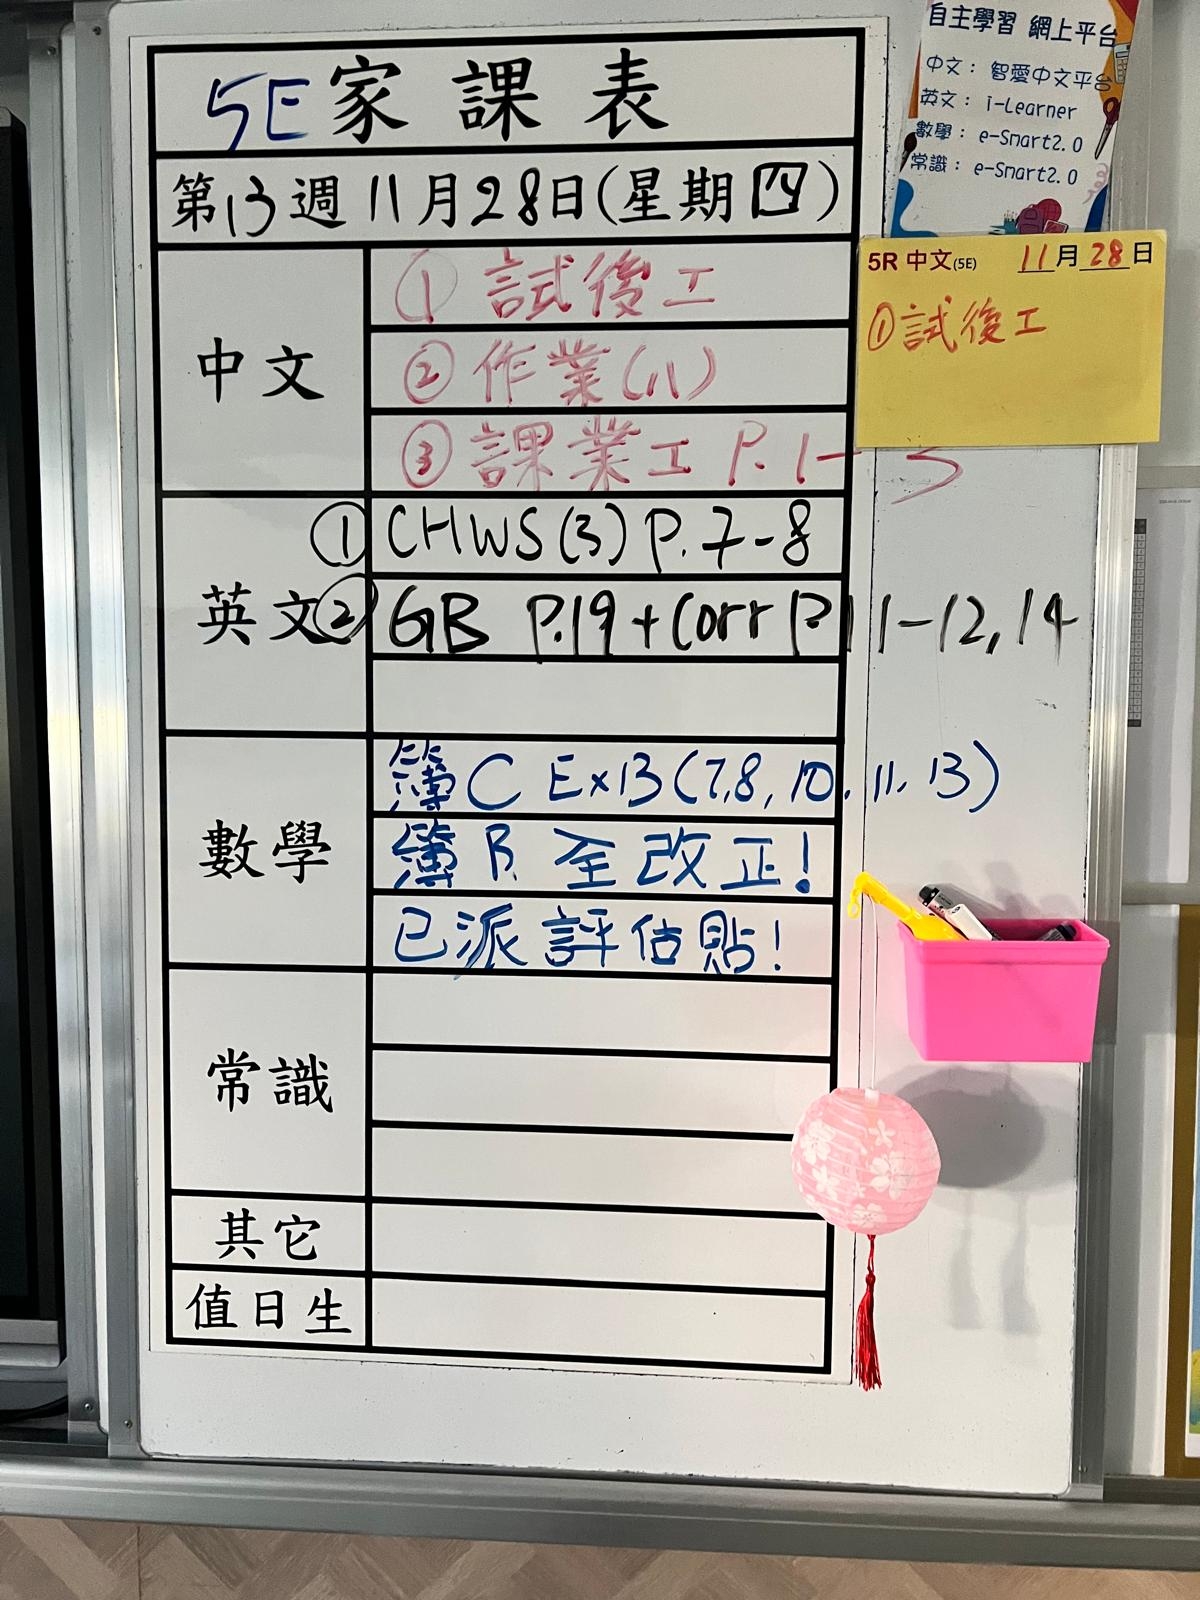 5E家課表
第13週11月28日(星期四)
中文
① 試後工
② 作業(八)
③ 課業工 P.1-3
英文
① CHWS(3) P.7-8
② GB P.19+Corr P.11-12,14
數學
簿C Ex13(7,8,10,11,13)
簿B 全改正!
已派評估貼!
常識
其它
值日生
自主學習 網上平台
中文：智愛中文平台
英文：i-Learner
數學：e-Smart2.0
常識：e-Smart2.0
5R 中文(5E) 11月28日
①試後工